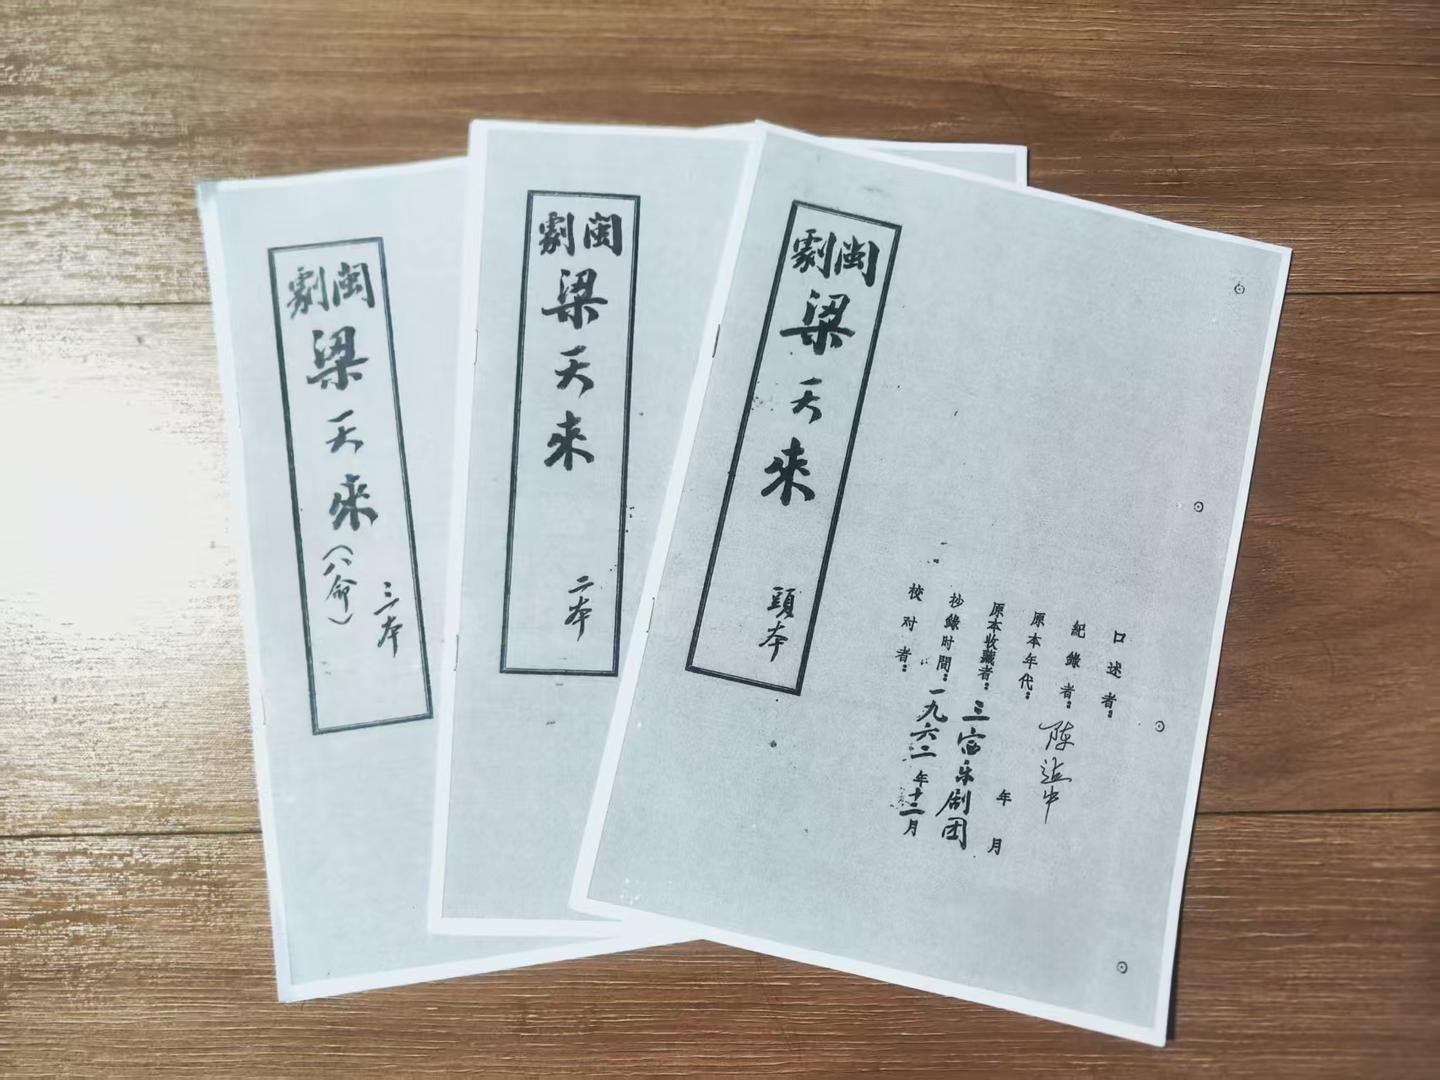 闽劇
梁天來
頭本
口述者：
紀錄者：陈
原本年代： 年 月
原本收藏者：三赛乐剧团
抄錄时間：一九六二年十二月
校对者：
闽劇
梁天來
二本
闽劇
梁天來
（八命）
三本